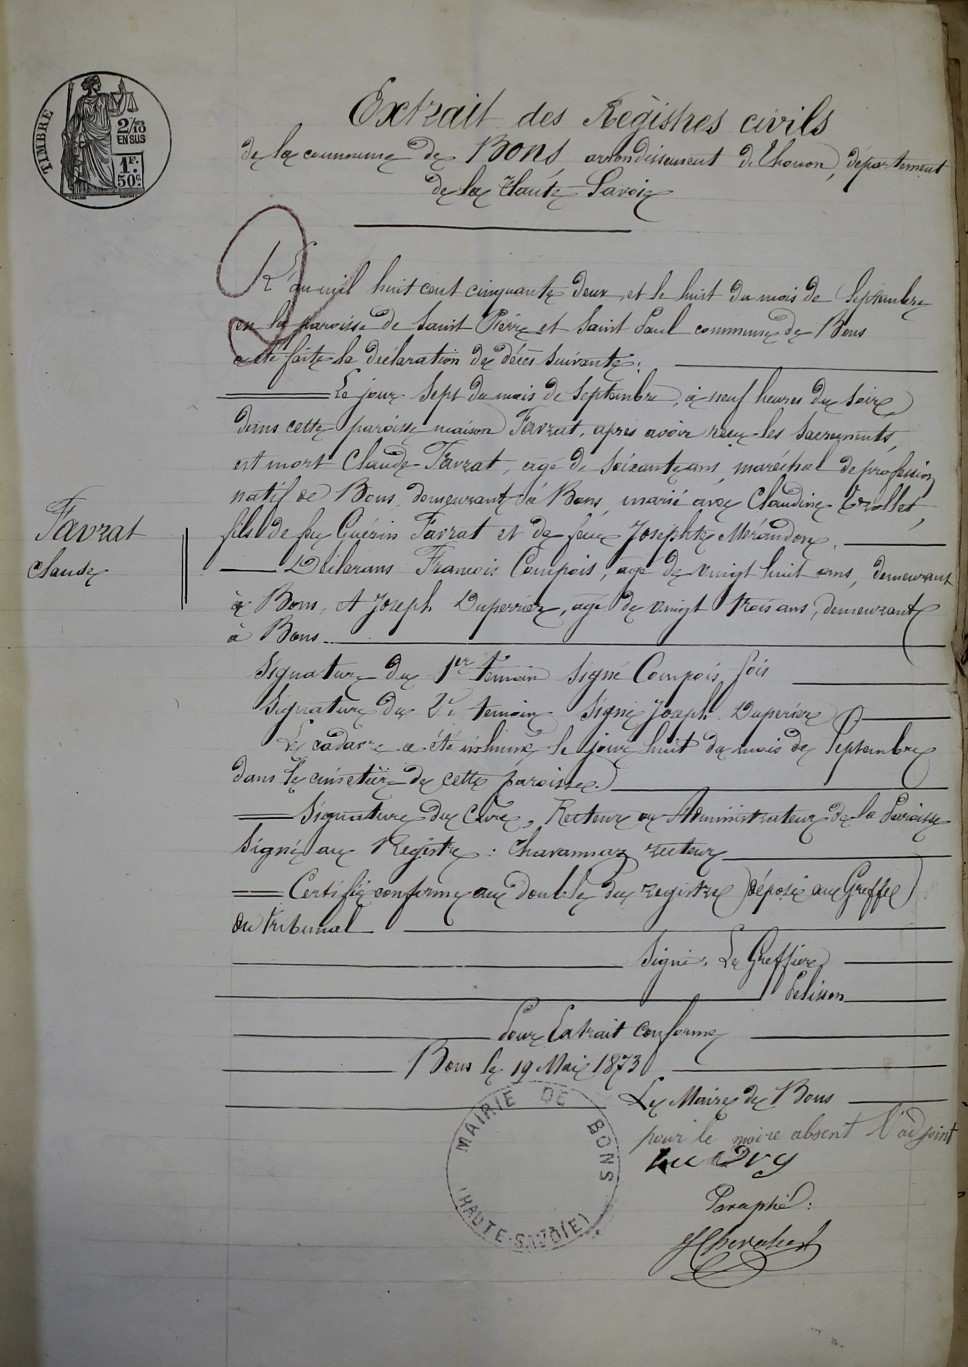 TIMBRE
2/10
EN SUS
1F.
50c
Extrait des Régistres civils
de la commune de Bons, arrondissement de Thonon, département
de la Haute-Savoie
L'an mil huit cent cinquante deux et le huit du mois de Septembre
en la paroisse de Saint Pierre et Saint Paul commune de Bons
a été faite la déclaration de décès suivante.
Le jour Sept du mois de Septembre, à neuf heures du soir
dans cette paroisse maison Favrat, après avoir reçu les sacrements,
est mort Claude Favrat, agé de soixante ans, maréchal de profession
natif de Bons, demeurant à Bons, marié avec Claudine
fils de feu Guérin Favrat et de feue Josephte
Favrat
Claude
Déclarans François Compois, agé de vingt huit ans, demeurant
à Bons, et Joseph Duperrier, agé de vingt trois ans, demeurant
à Bons
Signature du 1er témoin Signé Compois fois
Signature du 2e témoin Signé Joseph Duperrier
Le cadavre a été inhumé le jour huit du mois de Septembre
dans le cimetière de cette paroisse.
Signature du Curé, Recteur ou Administrateur de la Paroisse
Signé au Régistre : Chavannaz recteur
Certifié conforme au double du registre déposé au Greffe
du tribunal
Signé. Le Greffier
Pelisson
Pour Extrait conforme
Bons le 19 Mai 1873
Le Maire de Bons
pour le maire absent l'adjoint
MAIRIE DE BONS
(HAUTE-SAVOIE)
Paraphé :